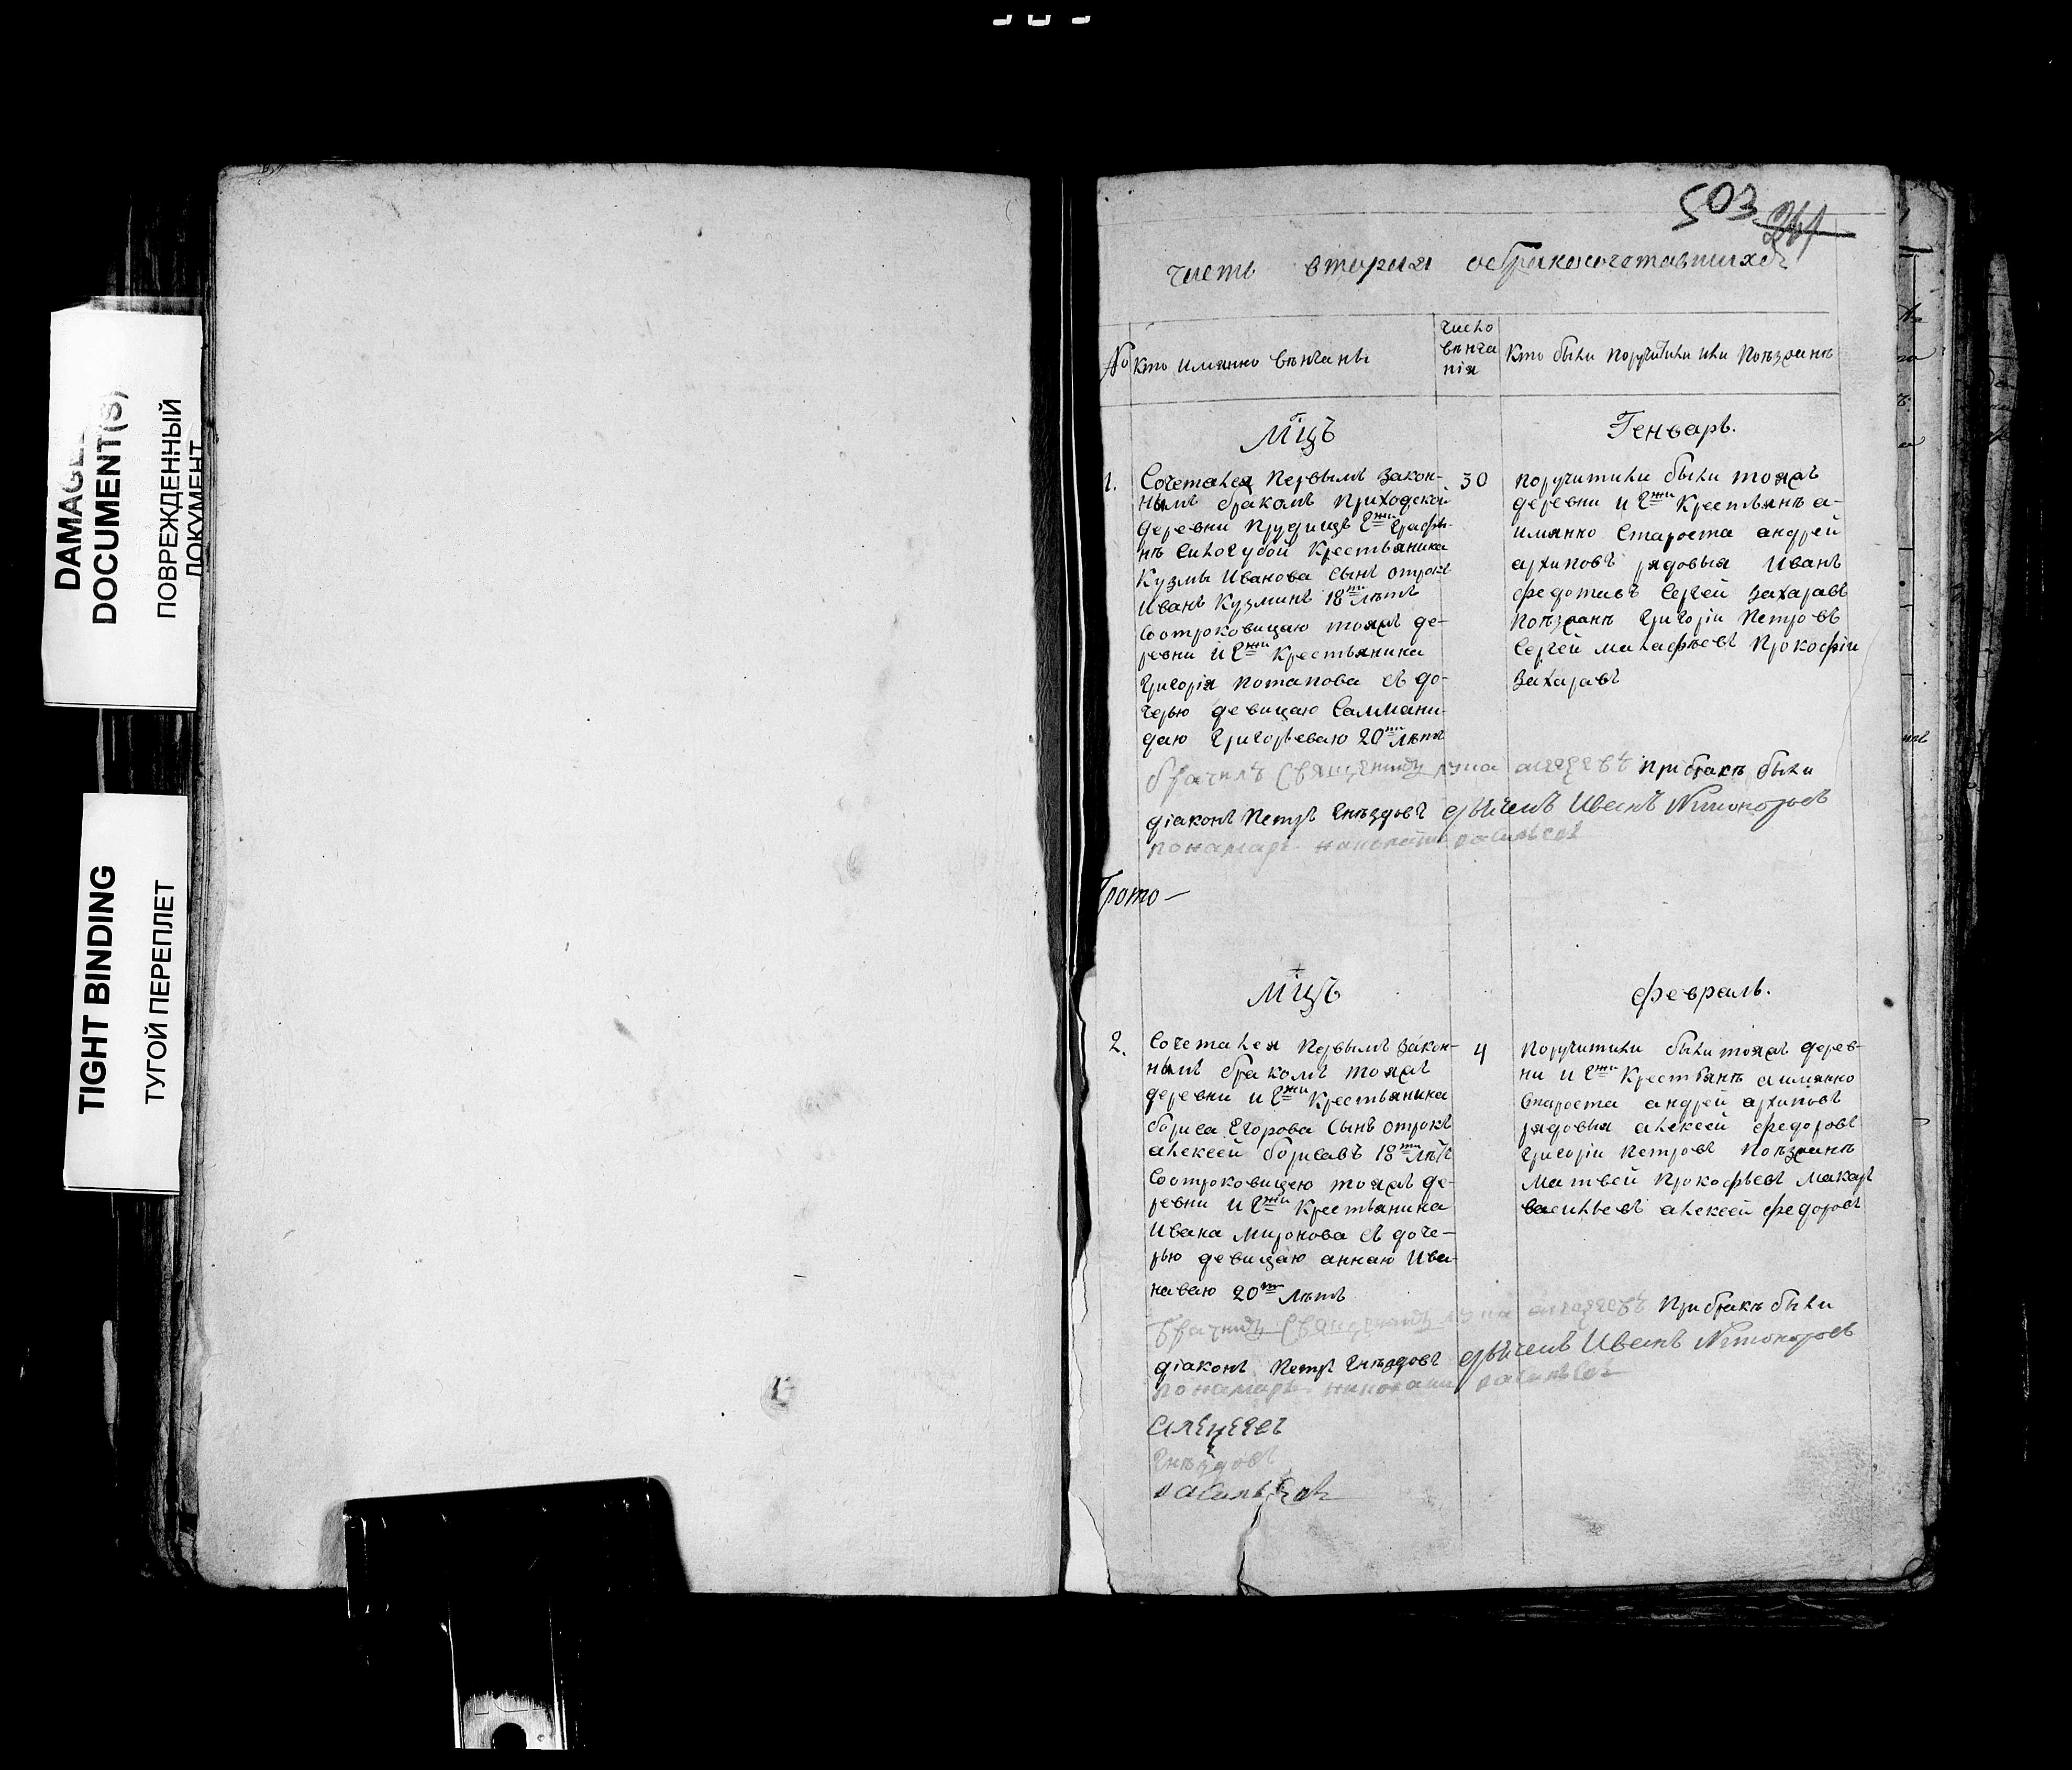 DAMAGED
DOCUMENT(S)
ПОВРЕЖДЕННЫЙ
ДОКУМЕНТ
TIGHT BINDING
ТУГОЙ ПЕРЕПЛЕТ
503
часть вторая обракосочетавшихся
№
кто имянно венчаны
число
венча
нія
кто были поручители или поѣзжанѣ
Мцъ
Генварь.
1.
Сочетался первымъ закон-
нымъ бракомъ приходской
деревни Прудищъ Гжи Графи-
нѣ Синогубой крестьянина
Кузмы Иванова сынъ отрокъ
Иванъ Кузминъ 18ти лѣтъ
соотроковицаю тояжъ де-
ревни и Гжи крестьянина
Григорія Потапова съ до-
черью девицаю Саламани-
даю Григорьеваю 20ти лѣтъ
30
поручители были тояжъ
деревни и Гжи крестьянъ а-
имянно староста андрей
архиповъ рядовыя Иванъ
федотовъ Сергей Захаравъ
поѣзжанѣ Григоріи Петровъ
Сергей Малафѣевъ Прокофіи
Захаравъ
священникъ лука алеѯеевъ при бракѣ были
діаконъ Петръ Гнѣздовъ дьячекъ Иванъ Никоноровъ
понамарь николай васильевъ
Мцъ
февраль.
2.
Сочетался первымъ закон-
нымъ бракомъ тояжъ
деревни и Гжи крестьянина
бориса Егорова сынъ отрокъ
алексей борисавъ 18ти лѣтъ
соотроковицею тояжъ де-
ревни и Гжи крестьянина
Ивана Миронова съ доче-
рью девицаю аннаю Ива-
наваю 20ти лѣтъ
4
поручители были тояжъ дерев-
ни и Гжи крестьянъ аимянно
староста андрей архиповъ
рядовыя алексей федоровъ
григоріи Петровъ поѣзжанѣ
Матвей Прокофьевъ Макаръ
васильевъ алексей федоровъ
священникъ лука алеѯеевъ при бракѣ были
діаконъ Петръ Гнѣздовъ дьячекъ Иванъ Никоноровъ
понамарь николай васильевъ
алеѯеевъ
Гнѣздовъ
васильевъ